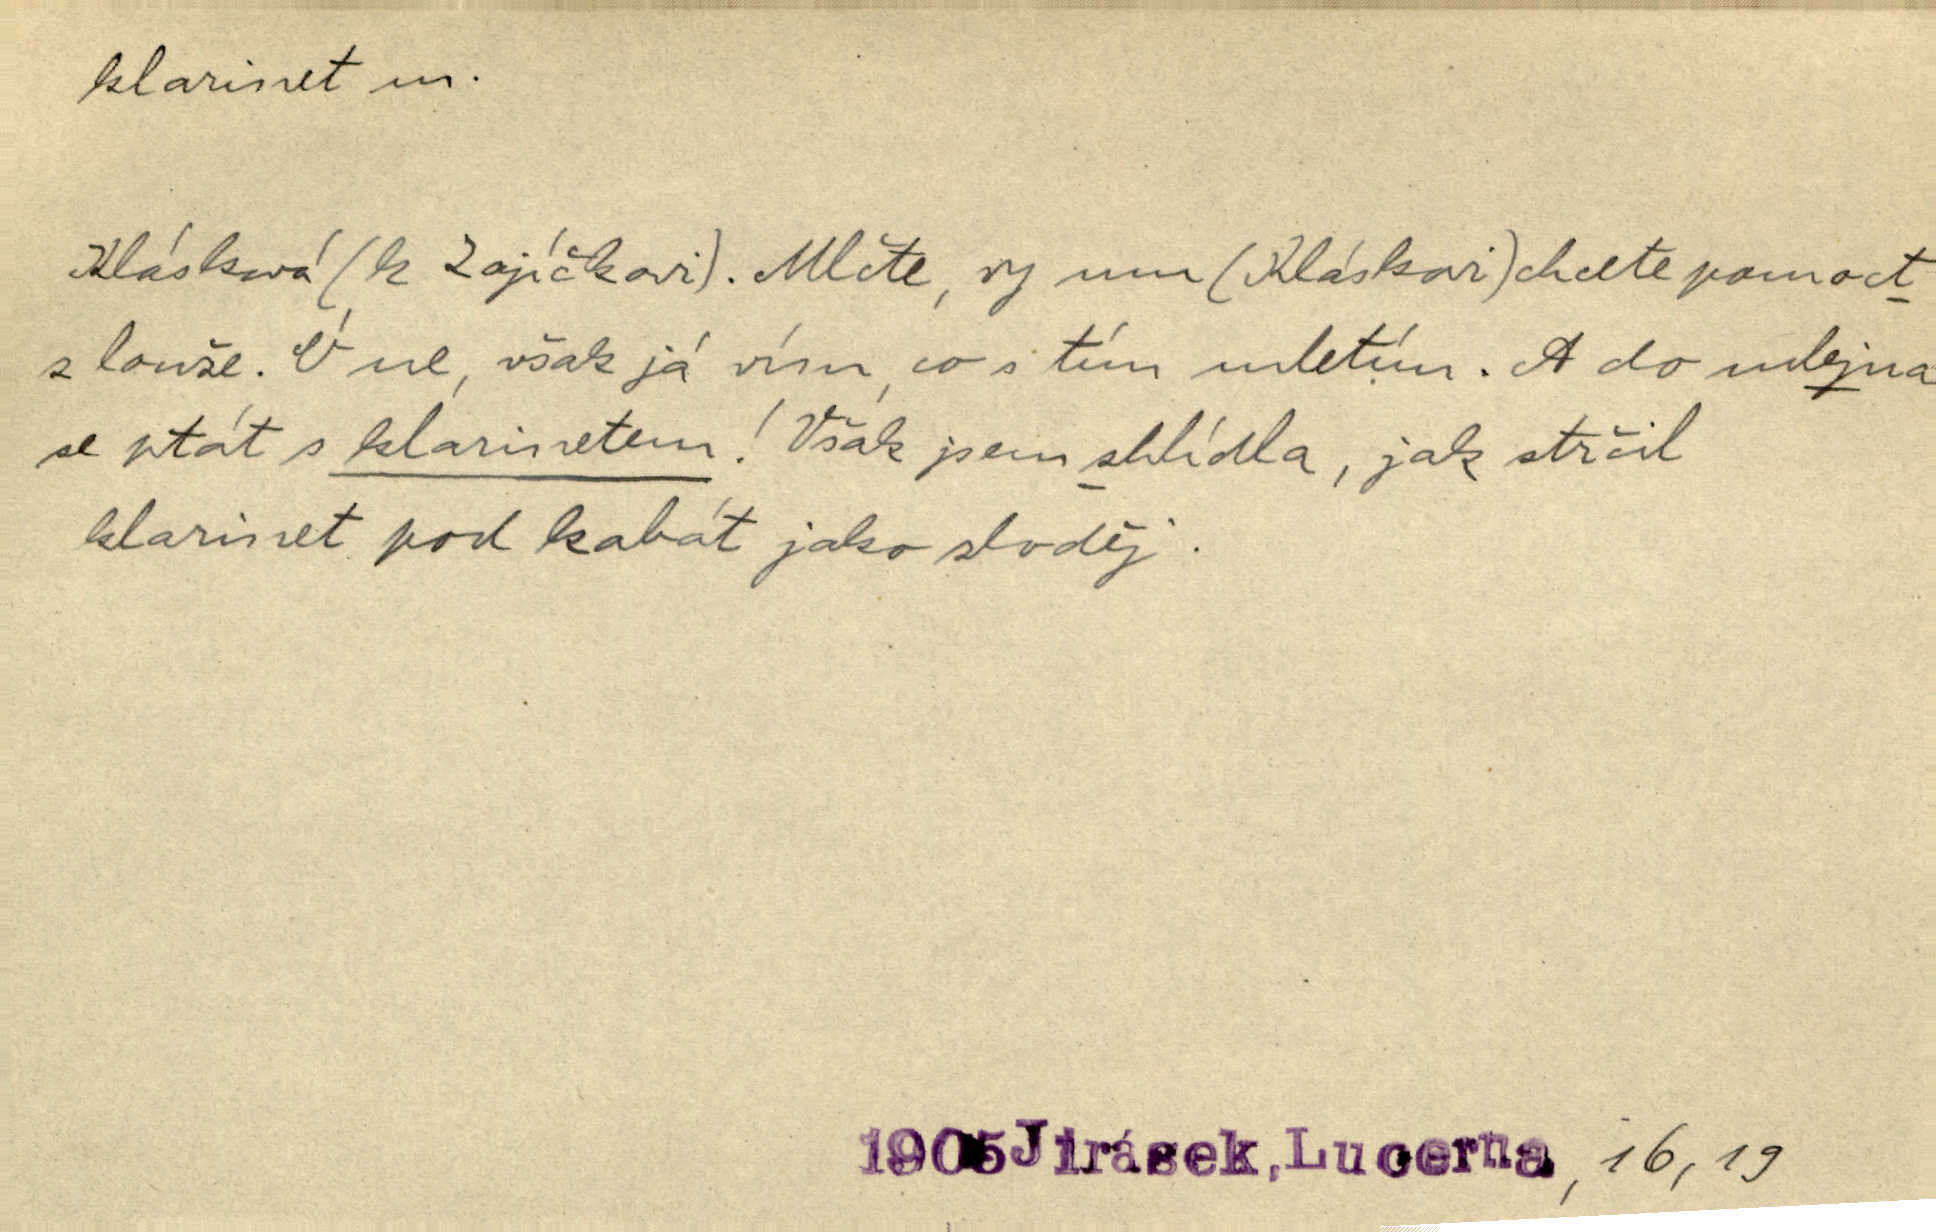 klarinet m.
Klásková (k Zajíčkovi). Mlčte, vy mu (Kláskovi) chcete pomoct
z louže. Ó ne, však já vím, co s tím mletím. A do mlejna
se ptát s klarinetem! Však jsem shlídla, jak strčil
klarinet pod kabát jako zloděj.
1905 Jirásek, Lucerna, 16, 19